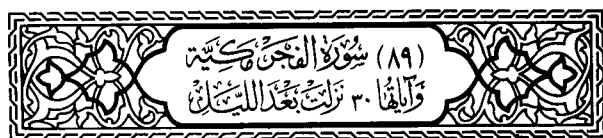 (٨٩) سُورَةُ الفَجْرِ مَكِيَّة
وَآيَاتُهَا ٣٠ نَزَلَتْ بَعْدَ اللَّيْلِ